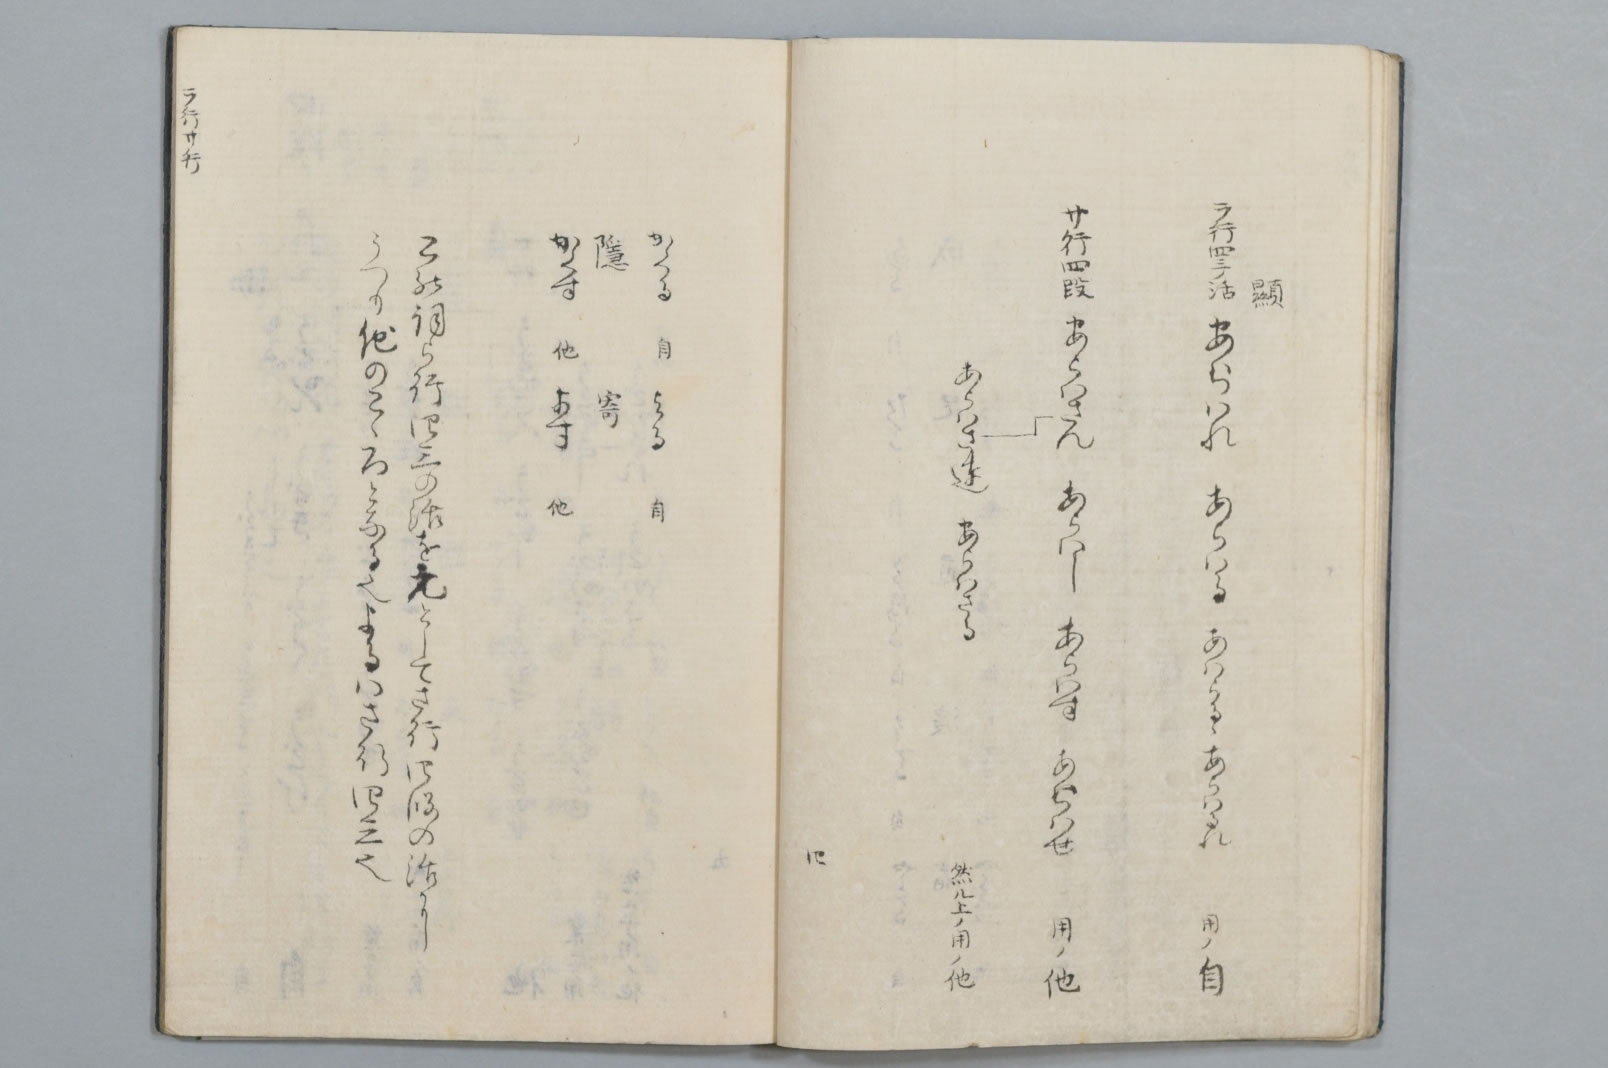 顯
ラ行四三ノ活 あらハれ あらハる あらハるゝ あらハるれ 用ノ自
サ行四段 あらハさん あらハし あらハす あらハせ 用ノ他
あらハさ あらハさる 然ル上ノ用ノ他
四
かくる 自 よる 自
隱 寄
かくす 他 よす 他
詞ら行四三の活を元としてさ行四段の活に
うつり他のこゝろとなる也よするハさ行四三也
ラ行サ行